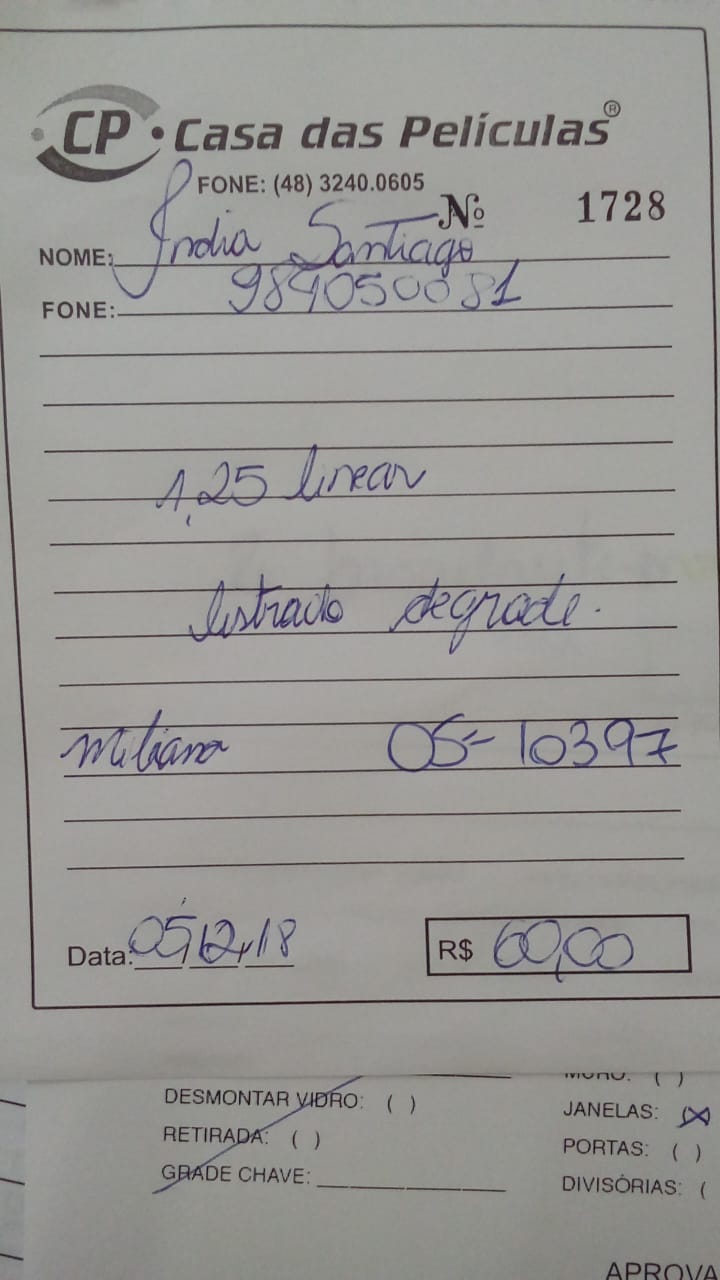 CP • Casa das Películas®
FONE: (48) 3240.0605
Nº 1728
NOME: Índia Santiago
FONE: 984050081
1,25 linear
listrado degrade.
OS- 10397
Data: 05/12/18
R$ 60,00
DESMONTAR VIDRO: ( )
RETIRADA: ( )
GRADE CHAVE:
MURO: ( )
JANELAS: (X)
PORTAS: ( )
DIVISÓRIAS: (
APROVA